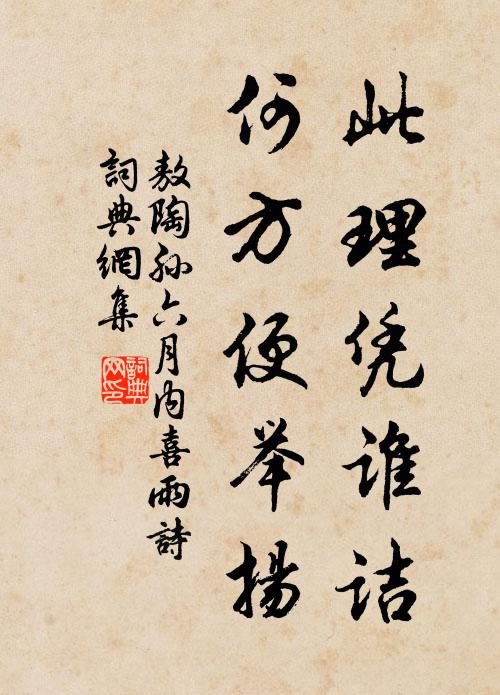 此理凭谁诘
何方便举揚
敖陶孙六月内喜雨詩
詞典網集
詞典网印